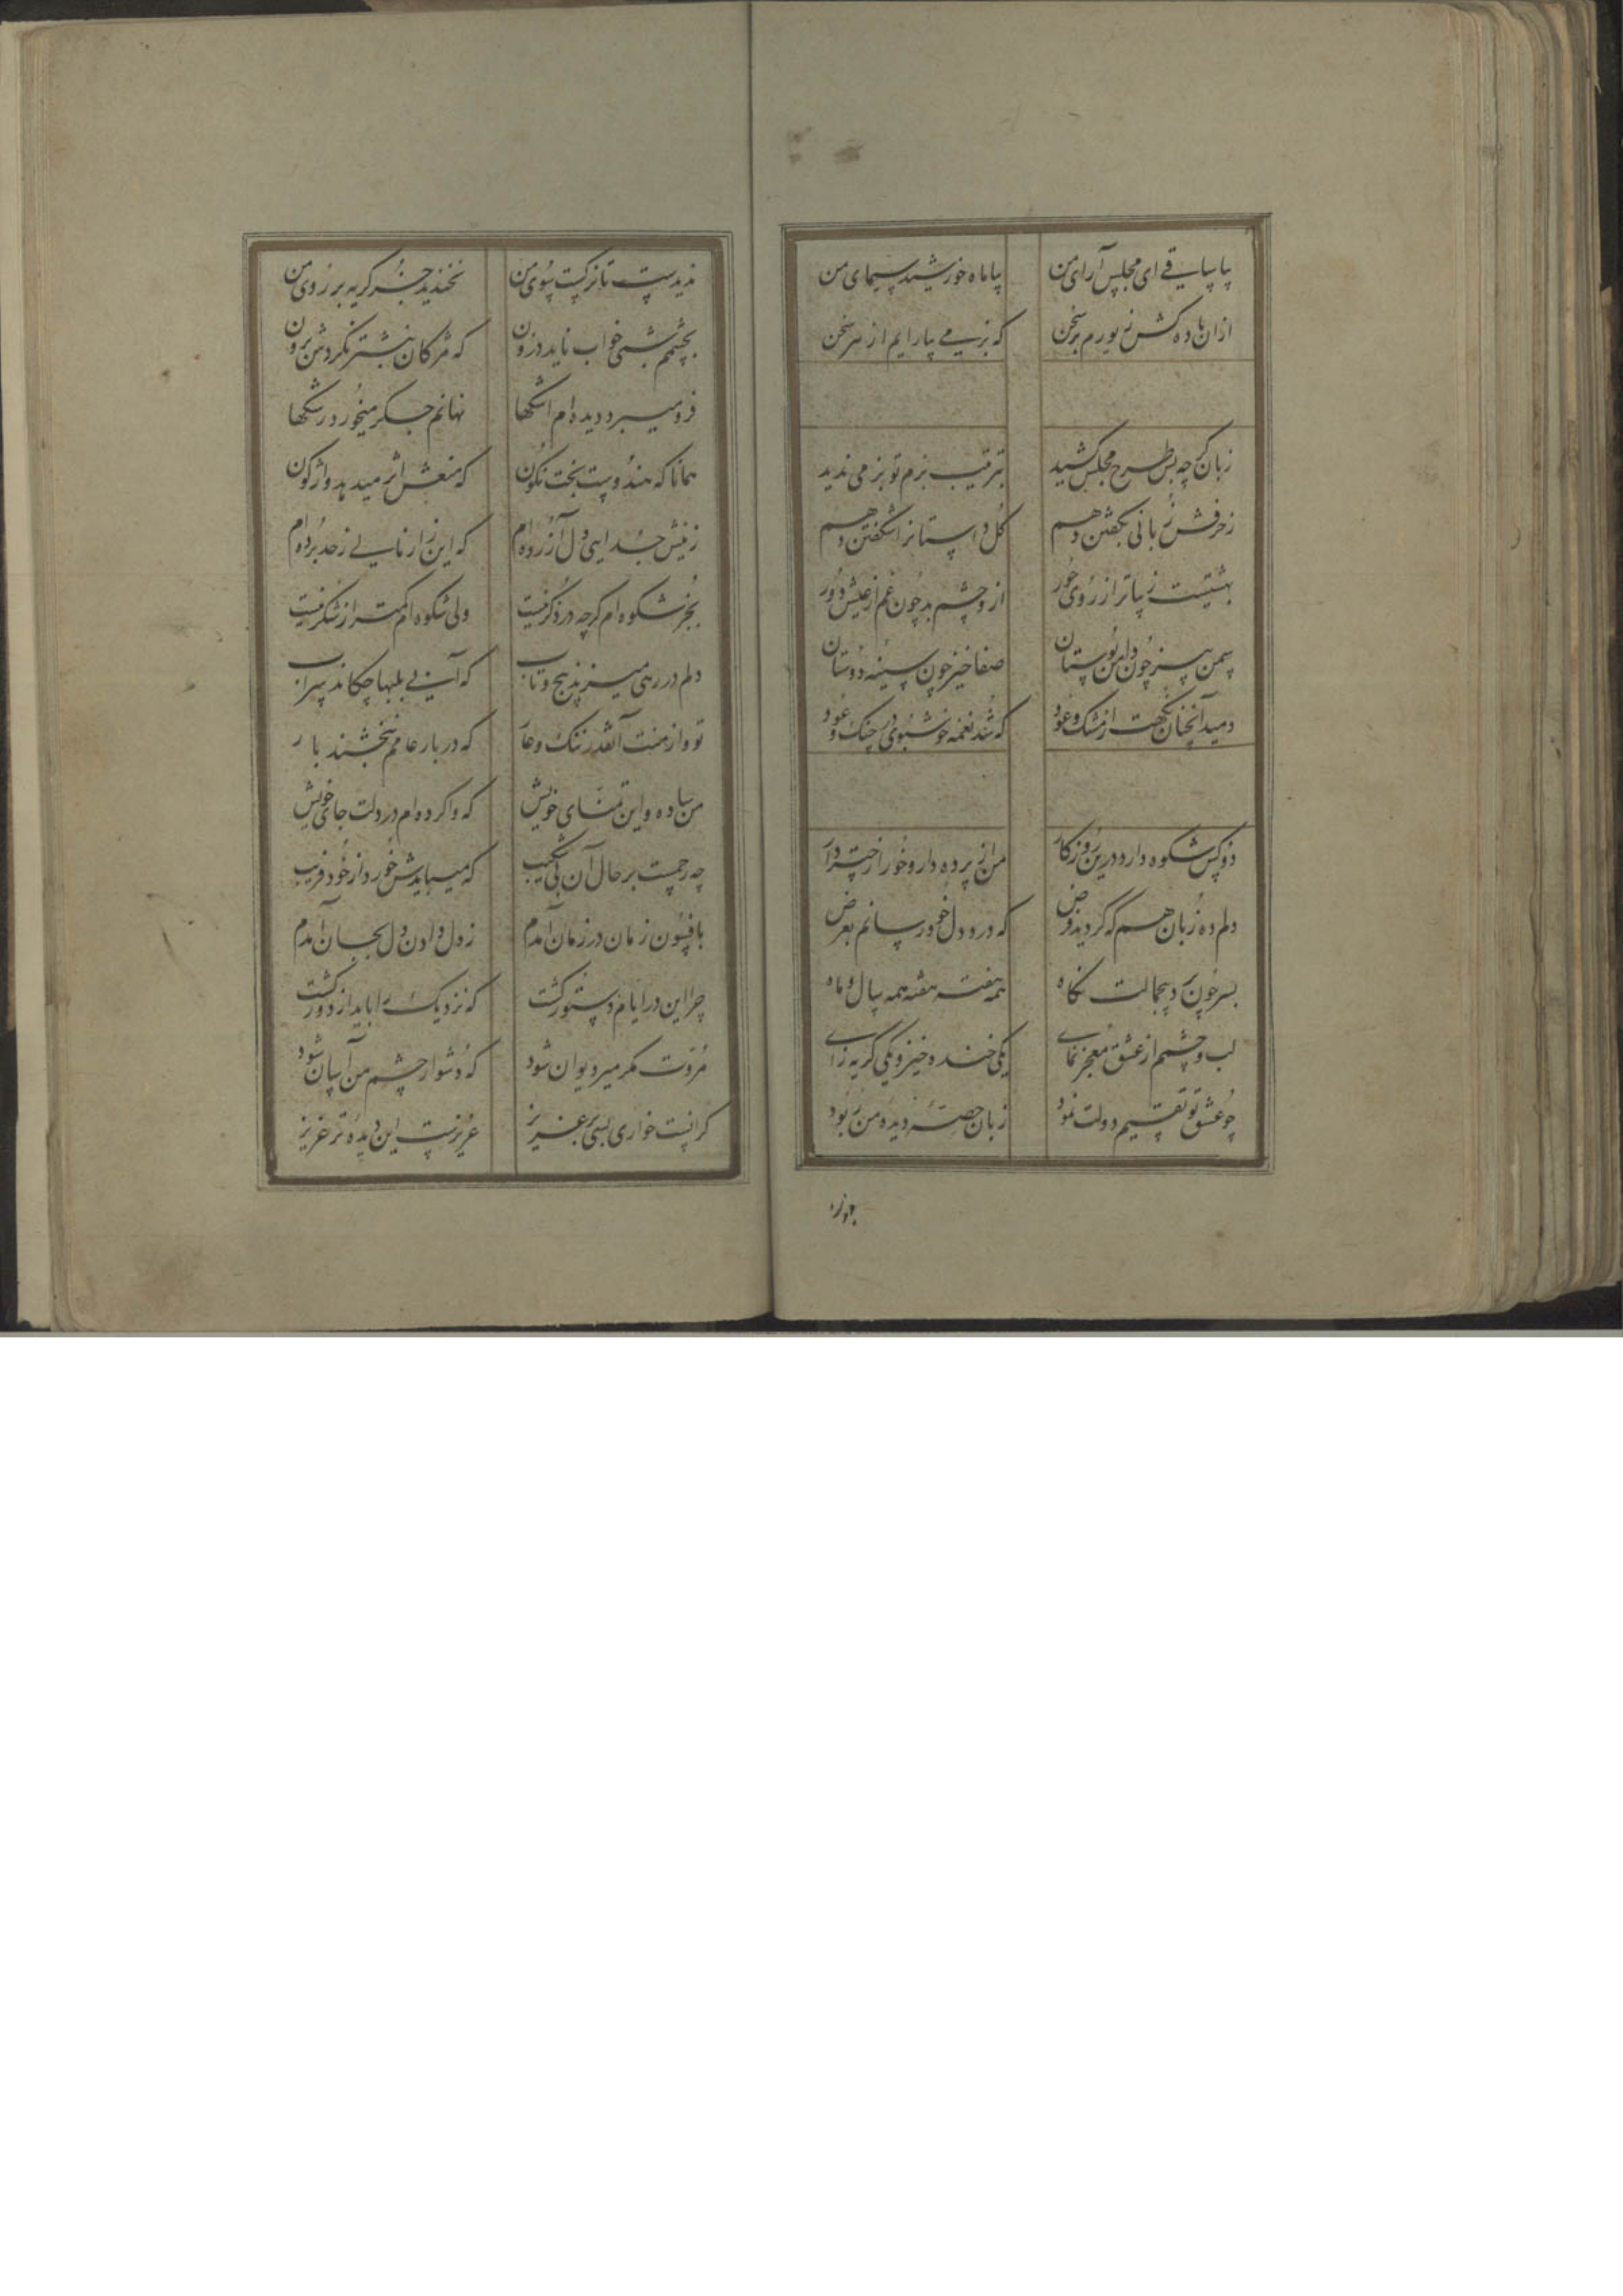 بیا ساقی ای مجلس آرای من بیا ماه خورشید سیمای من
ازان باده کش زیورم بر سخن که بزمی بیارایم از سر سخن
زبان گرچه بس طرح مجلس کشید بترتیب بزم تو بزمی ندید
ز حرفش زبانی بگفتن دهم گل داستانرا شگفتن دهم
بهشتیست زیباتر از روی حور ازو چشم بد چون غم از عیش دور
سمن سبز چون دامن بوستان صفا خیز چون سینه دوستان
دمید آنچنان نکهت از مشک و عود که شد نغمه خوشبوی در چنگ و عود
دو کس شکوه دارد درین روزکار من از پرده دار و خور از
دلم ده زبان هم که کردید فرض که درد دل خود رسانم بعرض
بسر چون رسد بیجمالت نگاه همه هفته هفته همه سال و ماه
لب و چشم از عشق معجز نمای یکی خنده خیز و یکی کریه زای
چو عشق تو تقسیم دولت نمود زبان حصه دیده من ربود
ندیدست تا نرکست سوی من نخندید جز کریه بر روی من
بچشمم شبی خواب ناید درون که مژکان بنشتر نکردش برون
فرو میبرد دیده ام اشکها نهانم جکر میخورد رشکها
همانا که هندوست بخت نکون که نعلش اثر میدهد واژکون
ز نیش جدایی دل آزرده ام که این زار نالی ز حد برده ام
بجز شکوه ام کرچه در ذکر نیست ولی شکوه ام کمتر از شکر نیست
دلم در رهی میزند پیچ و تاب که آبی بلبها چکاند سراب
تو و از منت آنقدر ننک و عار که در بار عامم نبخشند بار
من ساده و این تمنای خویش که وا کرده ام در دلت جای خویش
چه رحمست بر حال آن بی شکیب که میبایدش خورد از خود فریب
بافسون زمان در زمان آمدم ز دل دادن دل بجان آمدم
چرا این در ایام دستور کشت که نزدیک را باید از دور کشت
مروت مکر میر دیوان شود که دشوار چشم من آسان شود
کرانیست خواری بسی بر عزیز عزیزست این دیده تر عزیز